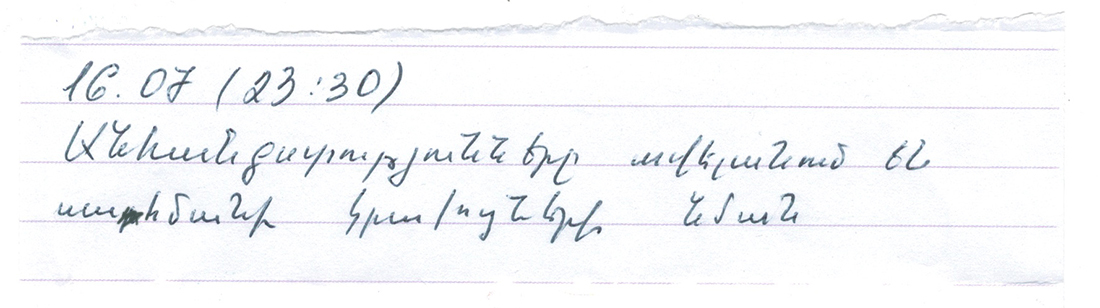 16.07 (23:30)
Անհանգստությունները ավելանում են
սահմանի կրակոցների նման